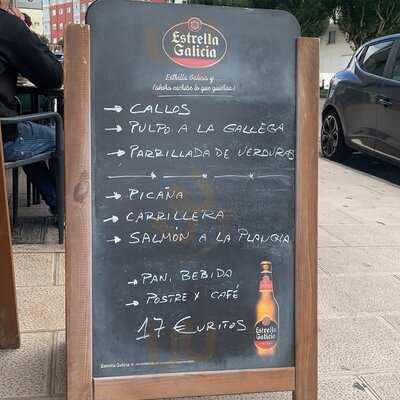 Estrella
Galicia
Estrella Galicia y
(ahora escribe lo que quieras)
→ CALLOS
→ PULPO A LA GALLEGA
→ PARRILLADA DE VERDURAS
→ PICAÑA
→ CARRILLERA
→ SALMÓN A LA PLANCHA
→ PAN, BEBIDA
→ POSTRE Y CAFÉ
17 EURITOS
Estrella
Galicia